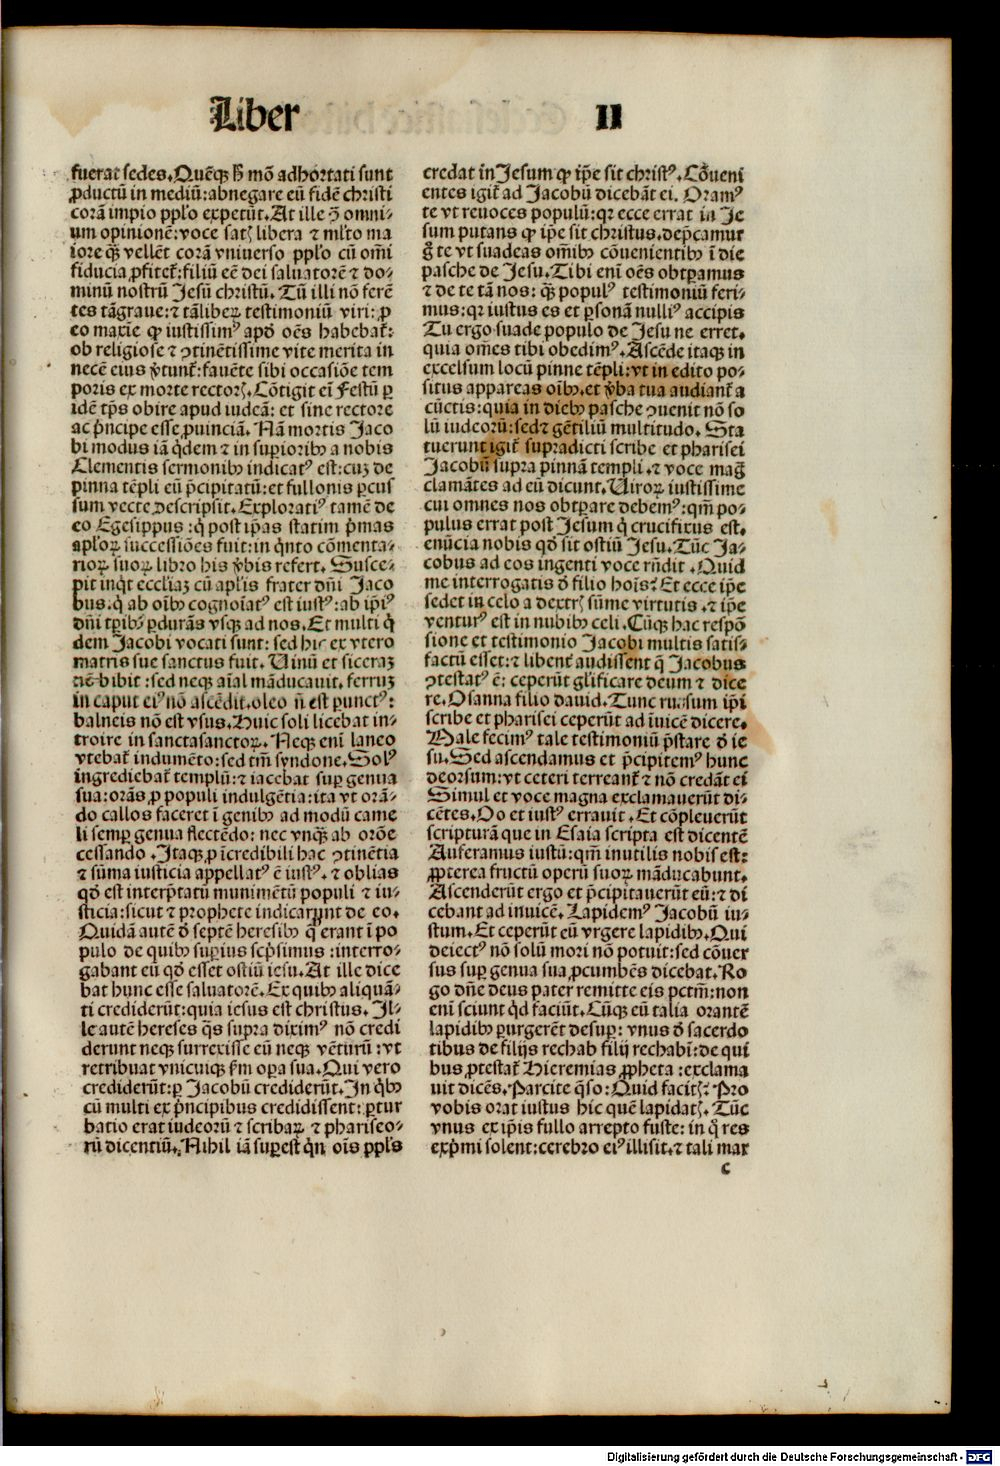 Liber II
fuerat sedes.Quēqȝ hͦ mō adhortati sunt
ꝓductū in mediū:abnegare eū fidē christi
corā impio pplo expetūt.At ille ꝯ̄ omni⸗
um opinionē:voce satꝭ libera ⁊ mlto ma
iore qꝫ vellēt corā vniuerso pplo cū om̄i
fiducia ꝓfitet᷑:filiū eē dei saluatorē ⁊ do⸗
minū nostrū Jesū christū.Tū illi nō ferē
tes tāgraue:⁊ tāliberꝝ testimoniū viri:ꝓ
eo maxīe ꝙ iustissimꝰ apd̄ oēs habebat᷑:
ob religiose ⁊ ꝯtinētissime vite merita in
necē eius v̄tunt᷑:fauēte sibi occasiōe tem
poris ex morte rectorꝭ.Cōtigit ei̅ Festū ꝑ
idē tp̄s obire apud iudeā: et sine rectore
ac p̄ncipe esse ꝓuinciā.Nā mortis Jaco
bi modus iā q̇dem ⁊ in suꝑioribꝫ a nobis
Clementis sermonibꝫ indicatꝰ est:cuȝ de
pinna tēpli eū p̄cipitatū:et fullonis ꝑcus
sum vecte descripsit.Exploratiꝰ tamē de
eo Egesippus:q̇ post ip̄as statim p̄mas
aplorꝝ successiōes fuit:in q̇nto cōmenta⸗
riorꝝ suorꝝ libro his v̄bis refert.Susce⸗
pit inq̇t eccliaȝ cū aplis frater dn̄i Jaco
bus.q̇ ab oībꝫ cognoīatꝰ est iustꝰ:ab ip̄iꝰ
dn̄i tꝑibꝫ ꝑdurās vsqȝ ad nos.Et multi q̇
dem Jacobi vocati sunt: sed hic ex vtero
matris sue sanctus fuit.Uinū et siceraȝ
nē bibit:sed neqȝ aīal māducauit.ferruȝ
in caput eiꝰ nō ascēdit.oleo n̄ est ꝑunctꝰ:
balneis nō est vsus.Huic soli licebat in⸗
troire in sanctasanctorꝝ.Neqȝ enī laneo
vtebat᷑ indumēto:sed tm̄ syndone.Solꝰ
ingrediebat᷑ templū:⁊ iacebat suꝑ genua
sua:orās ꝓ populi indulgētia:ita vt orā⸗
do callos faceret ī genibꝫ ad modū came
li semꝑ genua flectēdo: nec vnqȝ ab orōe
cessando.Itaqȝ ꝓ īcredibili hac ꝯtinētia
⁊ sūma iusticia appellatꝰ ē iustꝰ.⁊ oblias
qd̄ est interp̄tatū munimētū populi ⁊ iu⸗
sticia:sicut ⁊ prophete indicarunt de eo.
Quidā autē d̄ septē heresibꝫ q̄ erant ī po
pulo de quibꝫ suꝑius scp̄simus:interro⸗
gabant eū qd̄ esset ostiū iesu.At ille dice
bat hunc esse saluatorē.Ex quibꝫ aliquā⸗
ti crediderūt:quia iesus est christus. Il⸗
le autē hereses q̄s supra diximꝰ nō credi
derunt neqȝ surrexisse eū neqȝ vēturū:vt
retribuat vnicuiqȝ ẜm oꝑa sua.Qui vero
crediderūt:ꝑ Jacobū crediderūt.In q̇bꝫ
cū multi ex p̄ncipibus credidissent:ꝑtur
batio erat iudeorū ⁊ scribarꝝ ⁊ phariseo⸗
rū dicentiū.Nihil iā suꝑest q̇n oīs ppls
credat in Jesum ꝙ ip̄e sit christꝰ.Cōueni
entes igit᷑ ad Jacobū dicebāt ei.Oramꝰ
te vt reuoces populū:qꝛ ecce errat in Je
sum putans ꝙ ip̄e sit christus.dep̄camur
g̊ te vt suadeas om̄ibꝫ cōuenientibꝫ ī die
pasche de Jesu.Tibi enī oēs obtꝑamus
⁊ de te tā nos: qꝫ populꝰ testimoniū feri⸗
mus:qꝛ iustus es et ꝑsonā nulliꝰ accipis
Tu ergo suade populo de Jesu ne erret.
quia om̄es tibi obedimꝰ.Ascēde itaqȝ in
excelsum locū pinne tēpli:vt in edito po⸗
situs appareas oībꝫ.et v̄ba tua audiant᷑ a
cūctis:quia in diebꝫ pasche ꝯuenit nō so
lū iudeorū:sedꝫ gētiliū multitudo.Sta
tuerunt igit᷑ supradicti scribe et pharisei
Jacobū supra pinnā templi.⁊ voce mag̅
clamātes ad eū dicunt.Uirorꝝ iustissime
cui omnes nos obtꝑare debemꝰ:qm̄ po⸗
pulus errat post Jesum q̇ crucifixus est.
enūcia nobis qd̄ sit ostiū Jesu.Tūc Ja⸗
cobus ad eos ingenti voce rn̄dit.Quid
me interrogatis d̄ filio hoīs? Et ecce ip̄e
sedet in celo a dextrꝭ sūme virtutis.⁊ ip̄e
venturꝰ est in nubibꝫ celi.Cūqȝ hac respō
sione et testimonio Jacobi multis satis⸗
factū esset:⁊ libent᷑ audissent q̄ Jacobus
ꝯtestatꝰ ē: ceperūt glificare deum ⁊ dice
re.Osanna filio dauid.Tunc rursum ip̄i
scribe et pharisei ceperūt ad īuicē dicere.
Male fecimꝰ tale testimoniū p̄stare d̄ ie
su.Sed ascendamus et p̄cipitemꝰ hunc
deorsum:vt ceteri terreant᷑ ⁊ nō credāt ei
Simul et voce magna exclamauerūt di⸗
cētes.Oo et iustꝰ errauit.Et cōpleuerūt
scripturā que in Esaia scripta est dicentē
Auferamus iustū:qm̄ inutilis nobis est:
ꝓpterea fructū operū suorꝝ māducabunt.
Ascenderūt ergo et p̄cipitauerūt eū:⁊ di
cebant ad inuicē.Lapidemꝰ Jacobū iu⸗
stum.Et ceperūt eū vrgere lapidibꝫ.Qui
deiectꝰ nō solū mori nō potuit:sed cōuer
sus suꝑ genua sua ꝓcumbēs dicebat.Ro
go dn̄e deus pater remitte eis pctm̄:non
enī sciunt qd̄ faciūt.Cūqȝ eū talia orantē
lapidibꝫ ꝑurgerēt desuꝑ: vnus d̄ sacerdo
tibus de filijs rechab filij rechabī:de qui
bus ꝓtestat᷑ Hieremias ꝓpheta:exclama
uit dicēs.Parcite q̄so:Quid facitꝭ? Pro
vobis orat iustus hic quē lapidatꝭ.Tūc
vnus ex ip̄is fullo arrepto fuste: in q̇ res
exp̄mi solent:cerebro eiꝰ illisit.⁊ tali mar
c
Digitalisierung gefördert durch die Deutsche Forschungsgemeinschaft - DFG